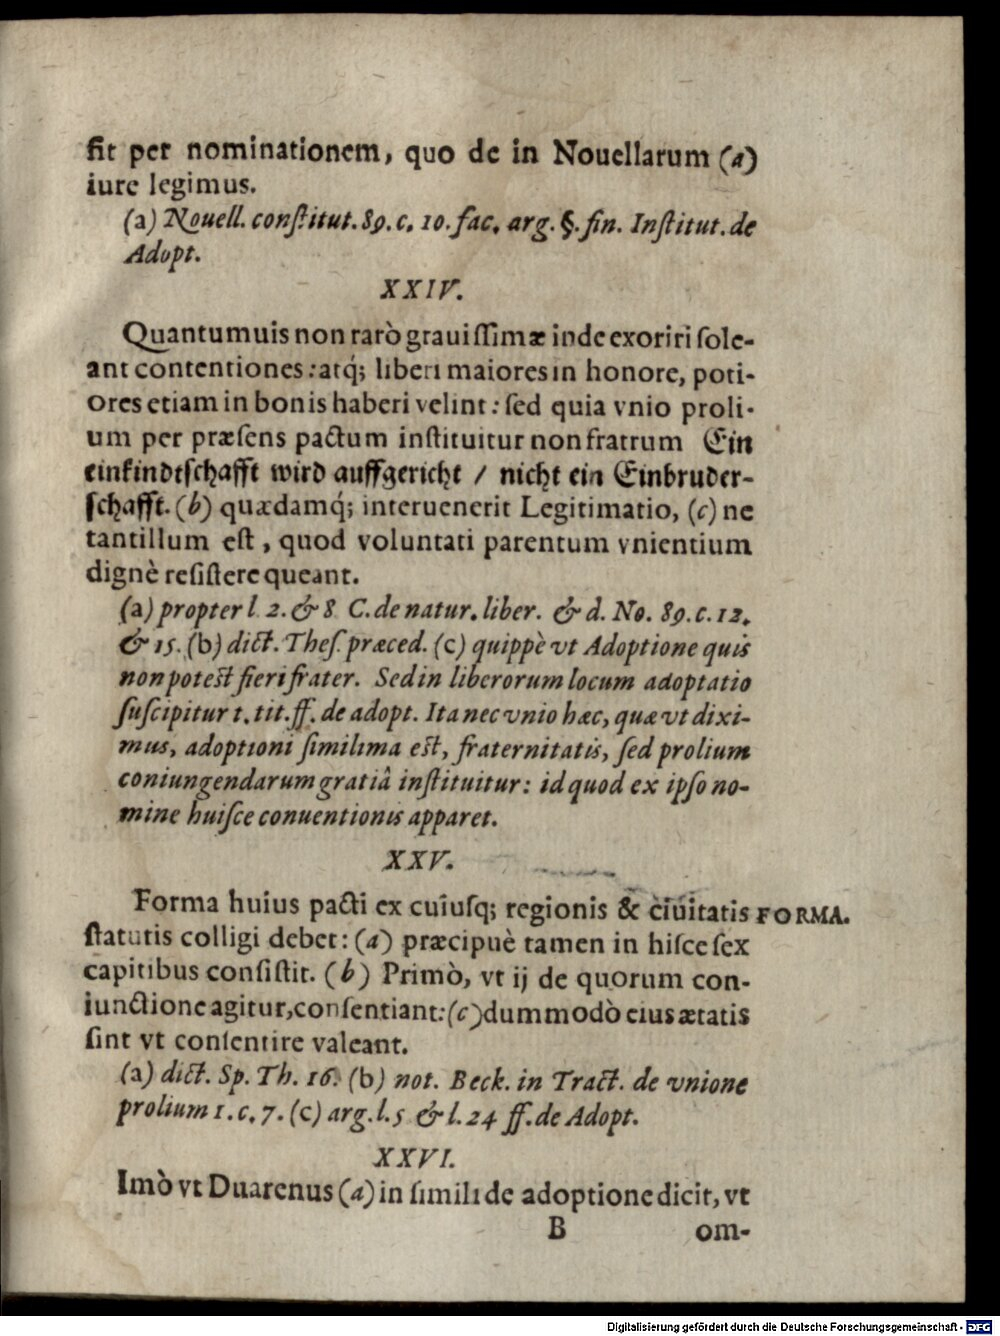 fit per nominationem, quo de in Nouellarum (a)
iure legimus.
(a) Nouell. conſtitut. 89. c. 10. fac. arg. §. fin. Inſtitut. de
Adopt.
XXIV.
Quantumuis non rarò grauiſſimæ inde exoriri ſole-
ant contentiones: atq́; liberi maiores in honore, poti-
ores etiam in bonis haberi velint: ſed quia vnio proli-
um per præſens pactum inſtituitur non fratrum Ein
einkindtſchafft wird auffgericht / nicht ein Einbruder-
ſchafft. (b) quædamq́; interuenerit Legitimatio, (c) ne
tantillum eſt, quod voluntati parentum vnientium
dignè reſiſtere queant.
(a) propter l 2. & 8 C. de natur. liber. & d. No. 89. c. 12.
& 15. (b) dict. Theſ. præced. (c) quippè vt Adoptione quis
non poteſt fieri frater. Sed in liberorum locum adoptatio
ſuſcipitur t. tit. ff. de adopt. Ita nec vnio hæc, quæ vt dixi-
mus, adoptioni ſimilima eſt, fraternitatis, ſed prolium
coniungendarum gratiâ inſtituitur: id quod ex ipſo no-
mine huiſce conuentionis apparet.
XXV.
Forma huius pacti ex cuiuſq; regionis & ciuitatis FORMA.
ſtatutis colligi debet: (a) præcipuè tamen in hiſce ſex
capitibus conſiſtit. (b) Primò, vt ij de quorum con-
iunctione agitur, conſentiant: (c) dummodò eius ætatis
ſint vt conſentire valeant.
(a) dict. Sp. Th. 16. (b) not. Beck. in Tract. de vnione
prolium 1. c. 7. (c) arg. l. 5 & l. 24 ff. de Adopt.
XXVI.
Imò vt Duarenus (a) in ſimili de adoptione dicit, vt
B om-
Digitalisierung gefördert durch die Deutsche Forschungsgemeinschaft - DFG